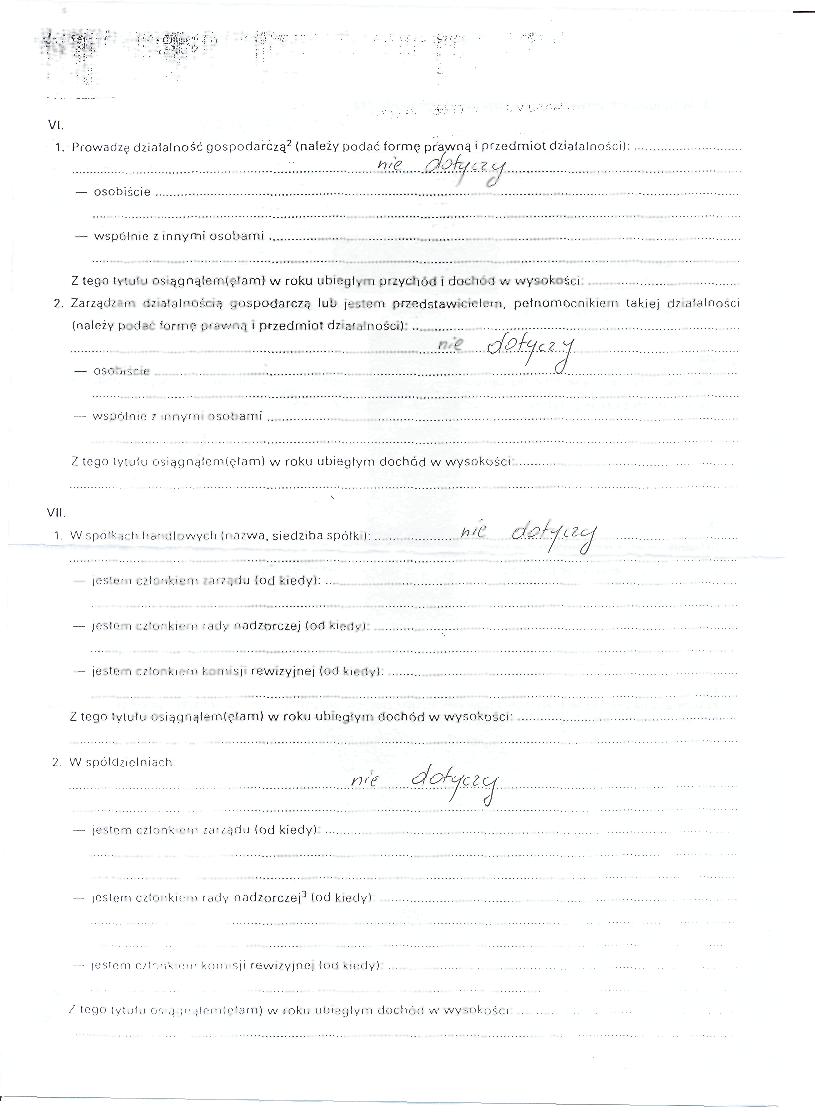 VI.
1. Prowadzę działalność gospodarczą² (należy podać formę prawną i przedmiot działalności): ....................
nie dotyczy
— osobiście ....................
— wspólnie z innymi osobami ....................
Z tego tytułu osiągnąłem(ęłam) w roku ubiegłym przychód i dochód w wysokości: ....................
2. Zarządzam działalnością gospodarczą lub jestem przedstawicielem, pełnomocnikiem takiej działalności
(należy podać formę prawną i przedmiot działalności): ....................
nie dotyczy
— osobiście ....................
— wspólnie z innymi osobami ....................
Z tego tytułu osiągnąłem(ęłam) w roku ubiegłym dochód w wysokości: ....................
VII.
1. W spółkach handlowych (nazwa, siedziba spółki): .................... nie dotyczy
— jestem członkiem zarządu (od kiedy): ....................
— jestem członkiem rady nadzorczej (od kiedy): ....................
— jestem członkiem komisji rewizyjnej (od kiedy): ....................
Z tego tytułu osiągnąłem(ęłam) w roku ubiegłym dochód w wysokości: ....................
2. W spółdzielniach
nie dotyczy
— jestem członkiem zarządu (od kiedy): ....................
— jestem członkiem rady nadzorczej³ (od kiedy) ....................
— jestem członkiem komisji rewizyjnej (od kiedy): ....................
Z tego tytułu osiągnąłem(ęłam) w roku ubiegłym dochód w wysokości: ....................